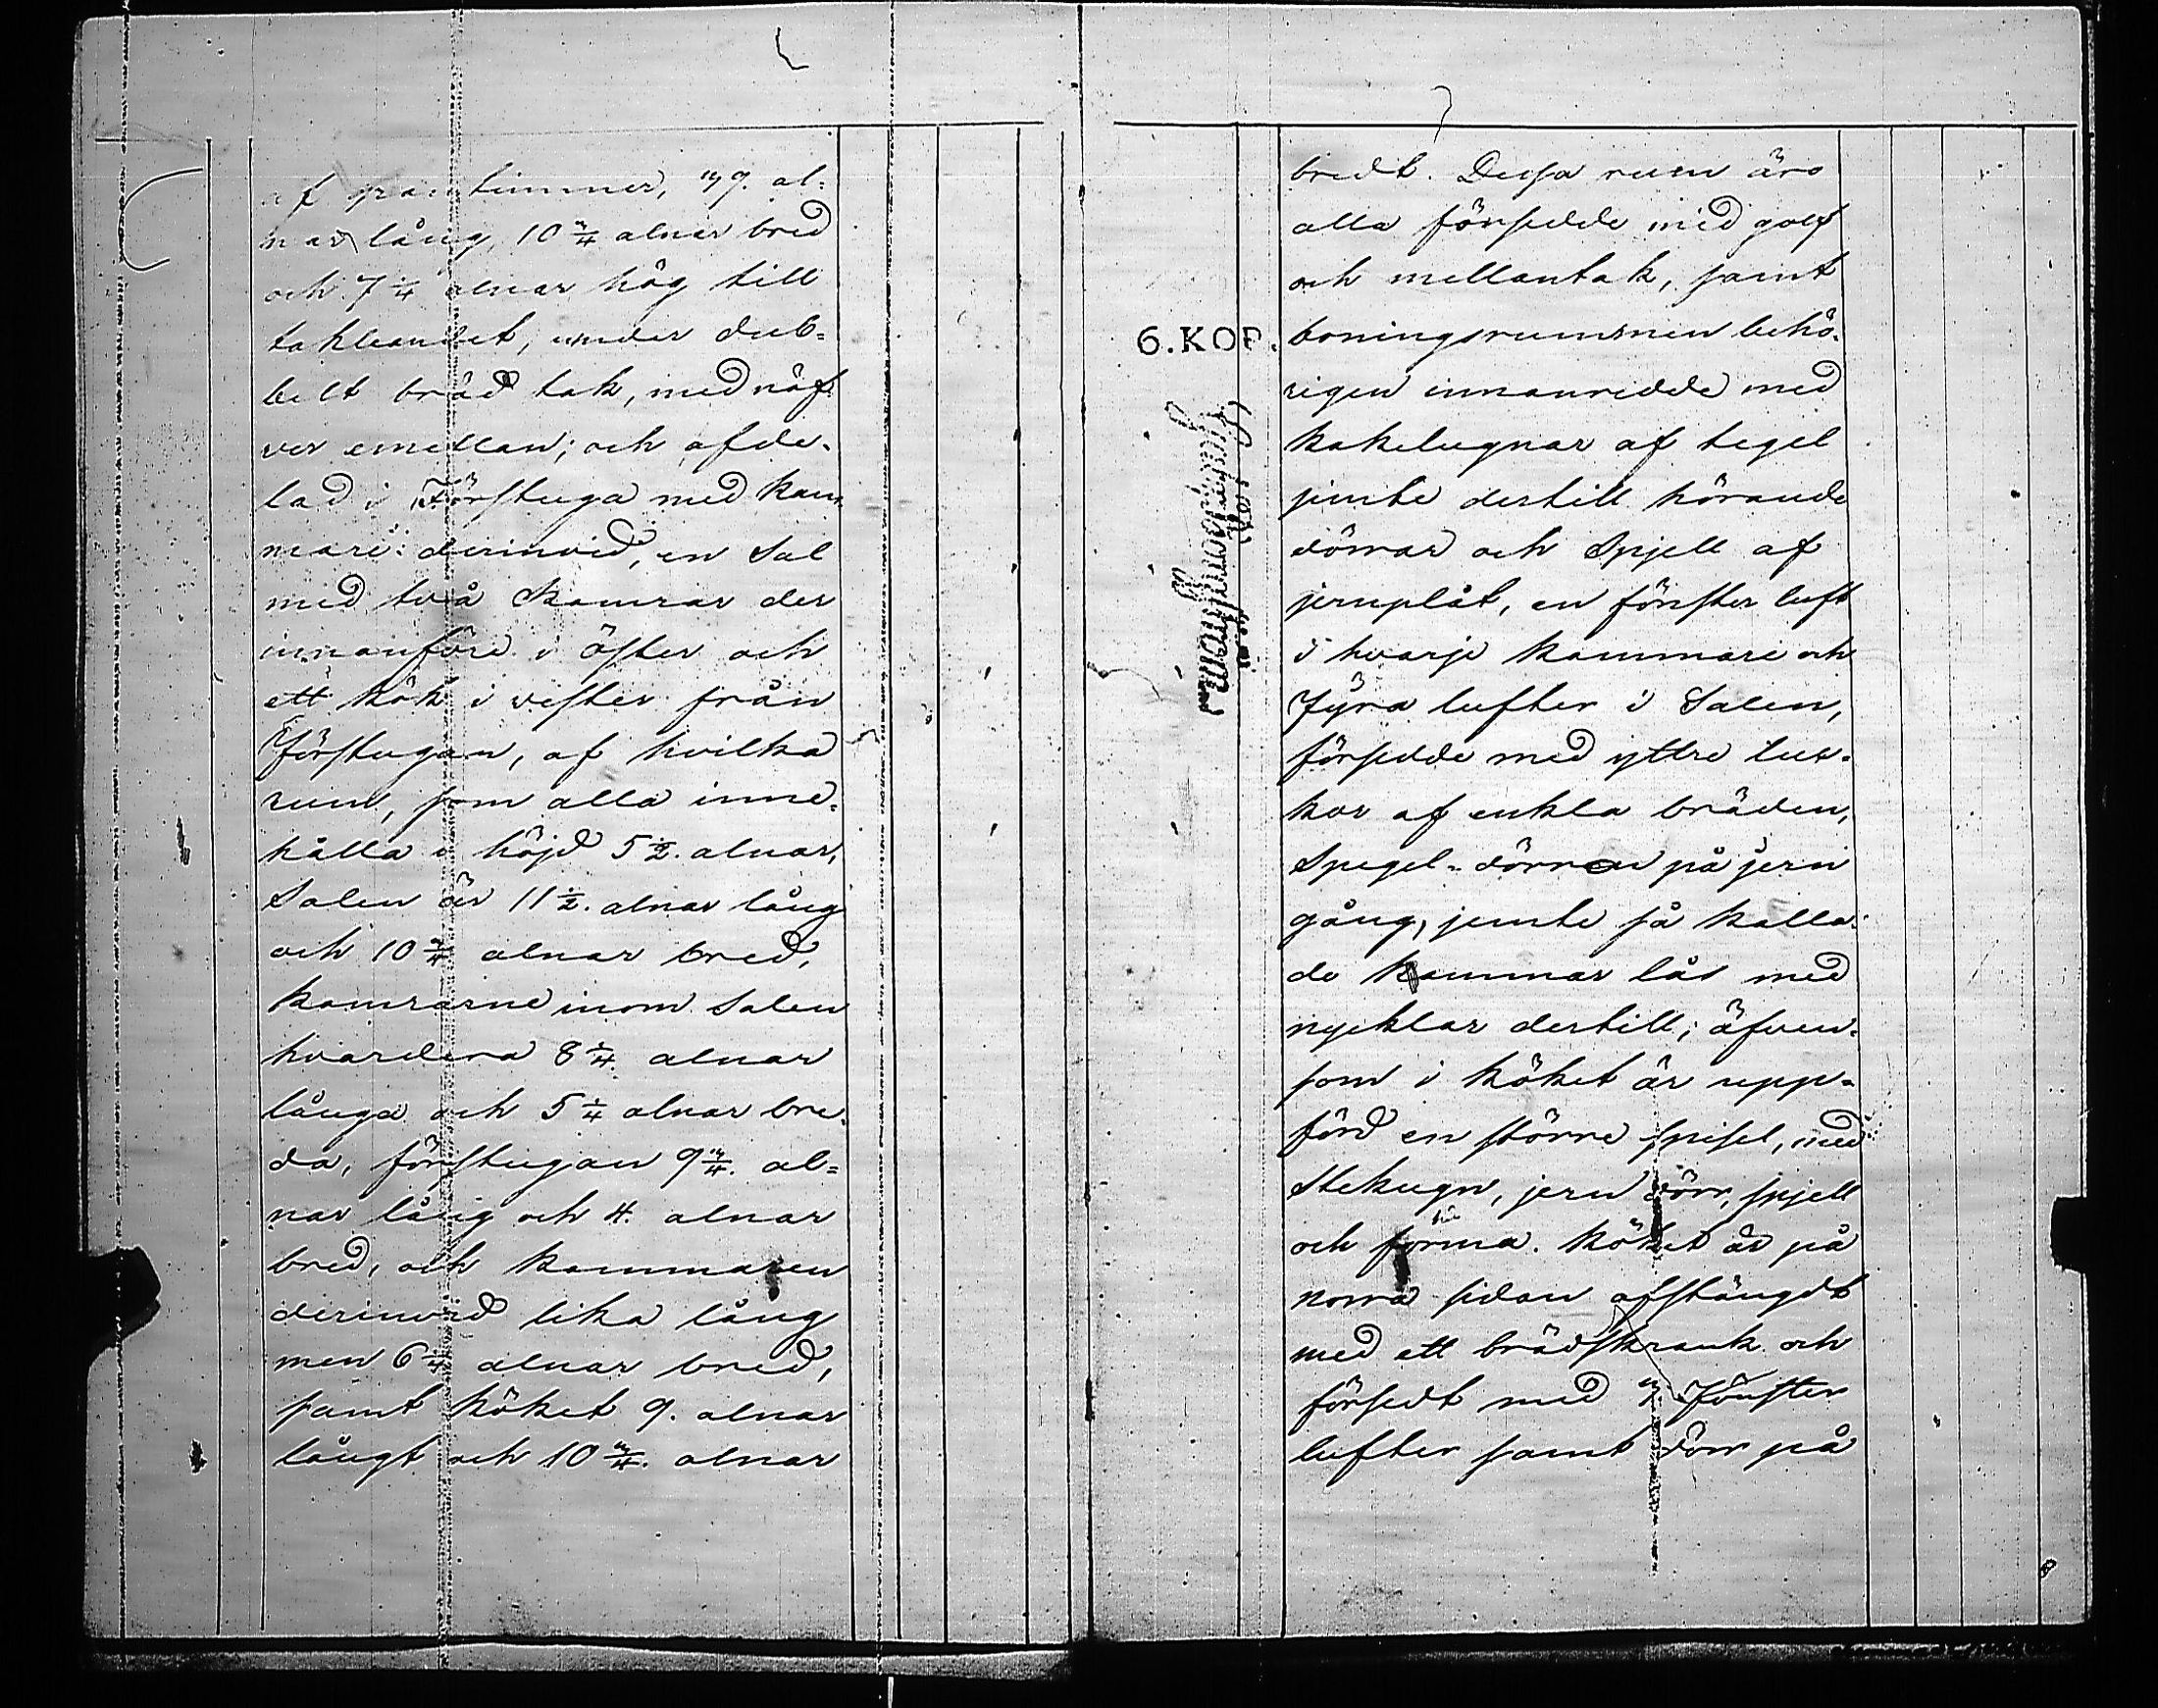 af grantimmer, 39. al=
nar lång, 10 3/4 alnar bred
och 7 1/4 alnar hög till
takbandet, under dub=
belt bräd tak, med näf
ver emellan; och afde-
lad i Förstuga med kam
mare derinvid, en Sal
med två Kamrar der
innanföre i öster och
ett kök i vester från
Förstugan, af hvilka
rum, som alla inne-
hålla i höjd 5 1/2. alnar,
Salen är 11 1/2. alnar lång
och 10 3/4 alnar bred,
Kamrarne inom Salen
hvardera 8 1/4. alnar
långa och 5 1/4 alnar bre-
da, förstugan 9 3/4. al=
nar lång och 4. alnar
bred, och kammaren
derinvid lika lång
men 6 1/4 alnar bred,
samt köket 9. alnar
långt och 10 3/4. alnar
bredt. Dessa rum äro
alla försedde med golf
och mellantak, samt
6.KOP.
boningsrummen behö-
rigen innanredde med
kakelugnar af tegel
jemte dertill hörande
dörrar och Spjell af
jernplåt, en fönster luft
i hvarje kammare och
Fyra lufter i Salen,
försedde med yttre luc-
kor af enkla bräden,
Spegel-dörrar på jern
gång, jemte så kalla-
de kammar lås med
nycklar dertill; äfven-
som i köket är upp-
förd en större spisel, med
Stekugn, jern dörr, spjell
och forma. Köket är på
norra sidan afstängdt
med ett brädskrank och
försedt med 3. Fönster
lufter samt dörr på
8